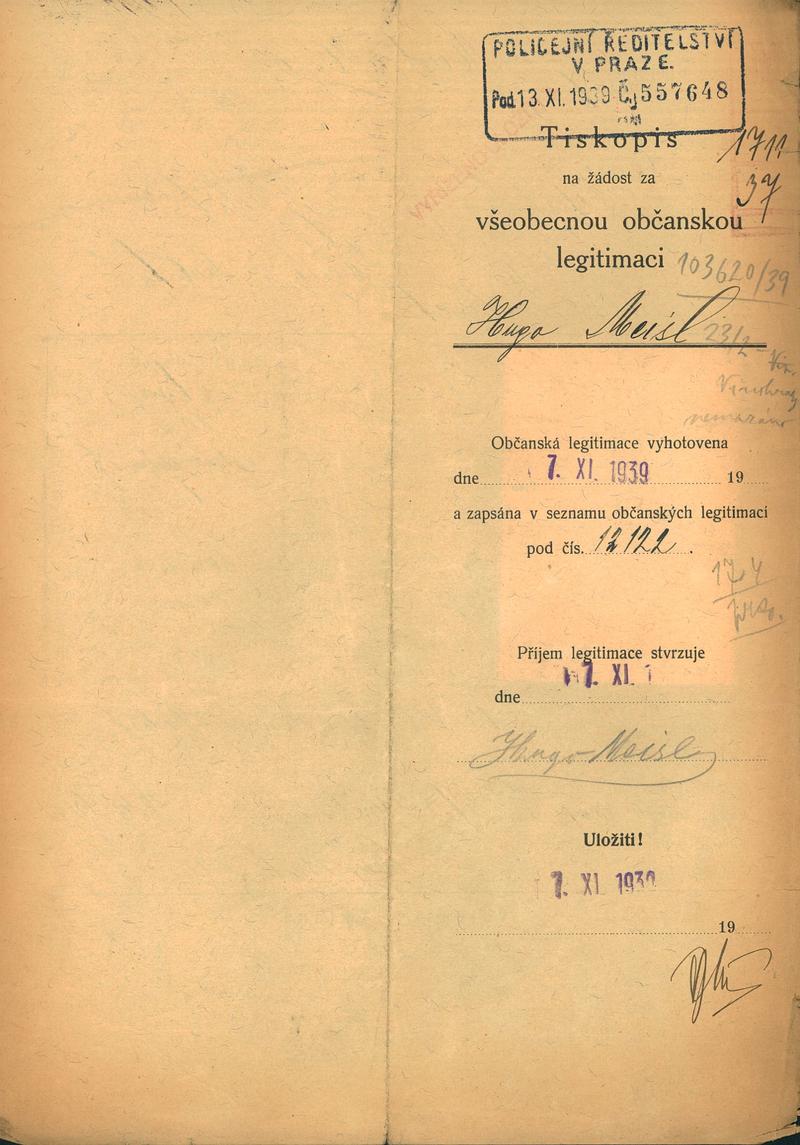 POLICEJNÍ ŘEDITELSTVÍ
V PRAZE.
Pod. 13. XI. 1939 Čj 557648
Tiskopis
1711
37
na žádost za
všeobecnou občanskou
legitimaci
103620/39
Hugo Meisl
Občanská legitimace vyhotovena
dne 7. XI. 1939 19
a zapsána v seznamu občanských legitimací
pod čís. 12122.
Příjem legitimace stvrzuje
7. XI. 1
dne
Hugo Meisl
Uložiti!
7. XI. 1939
19